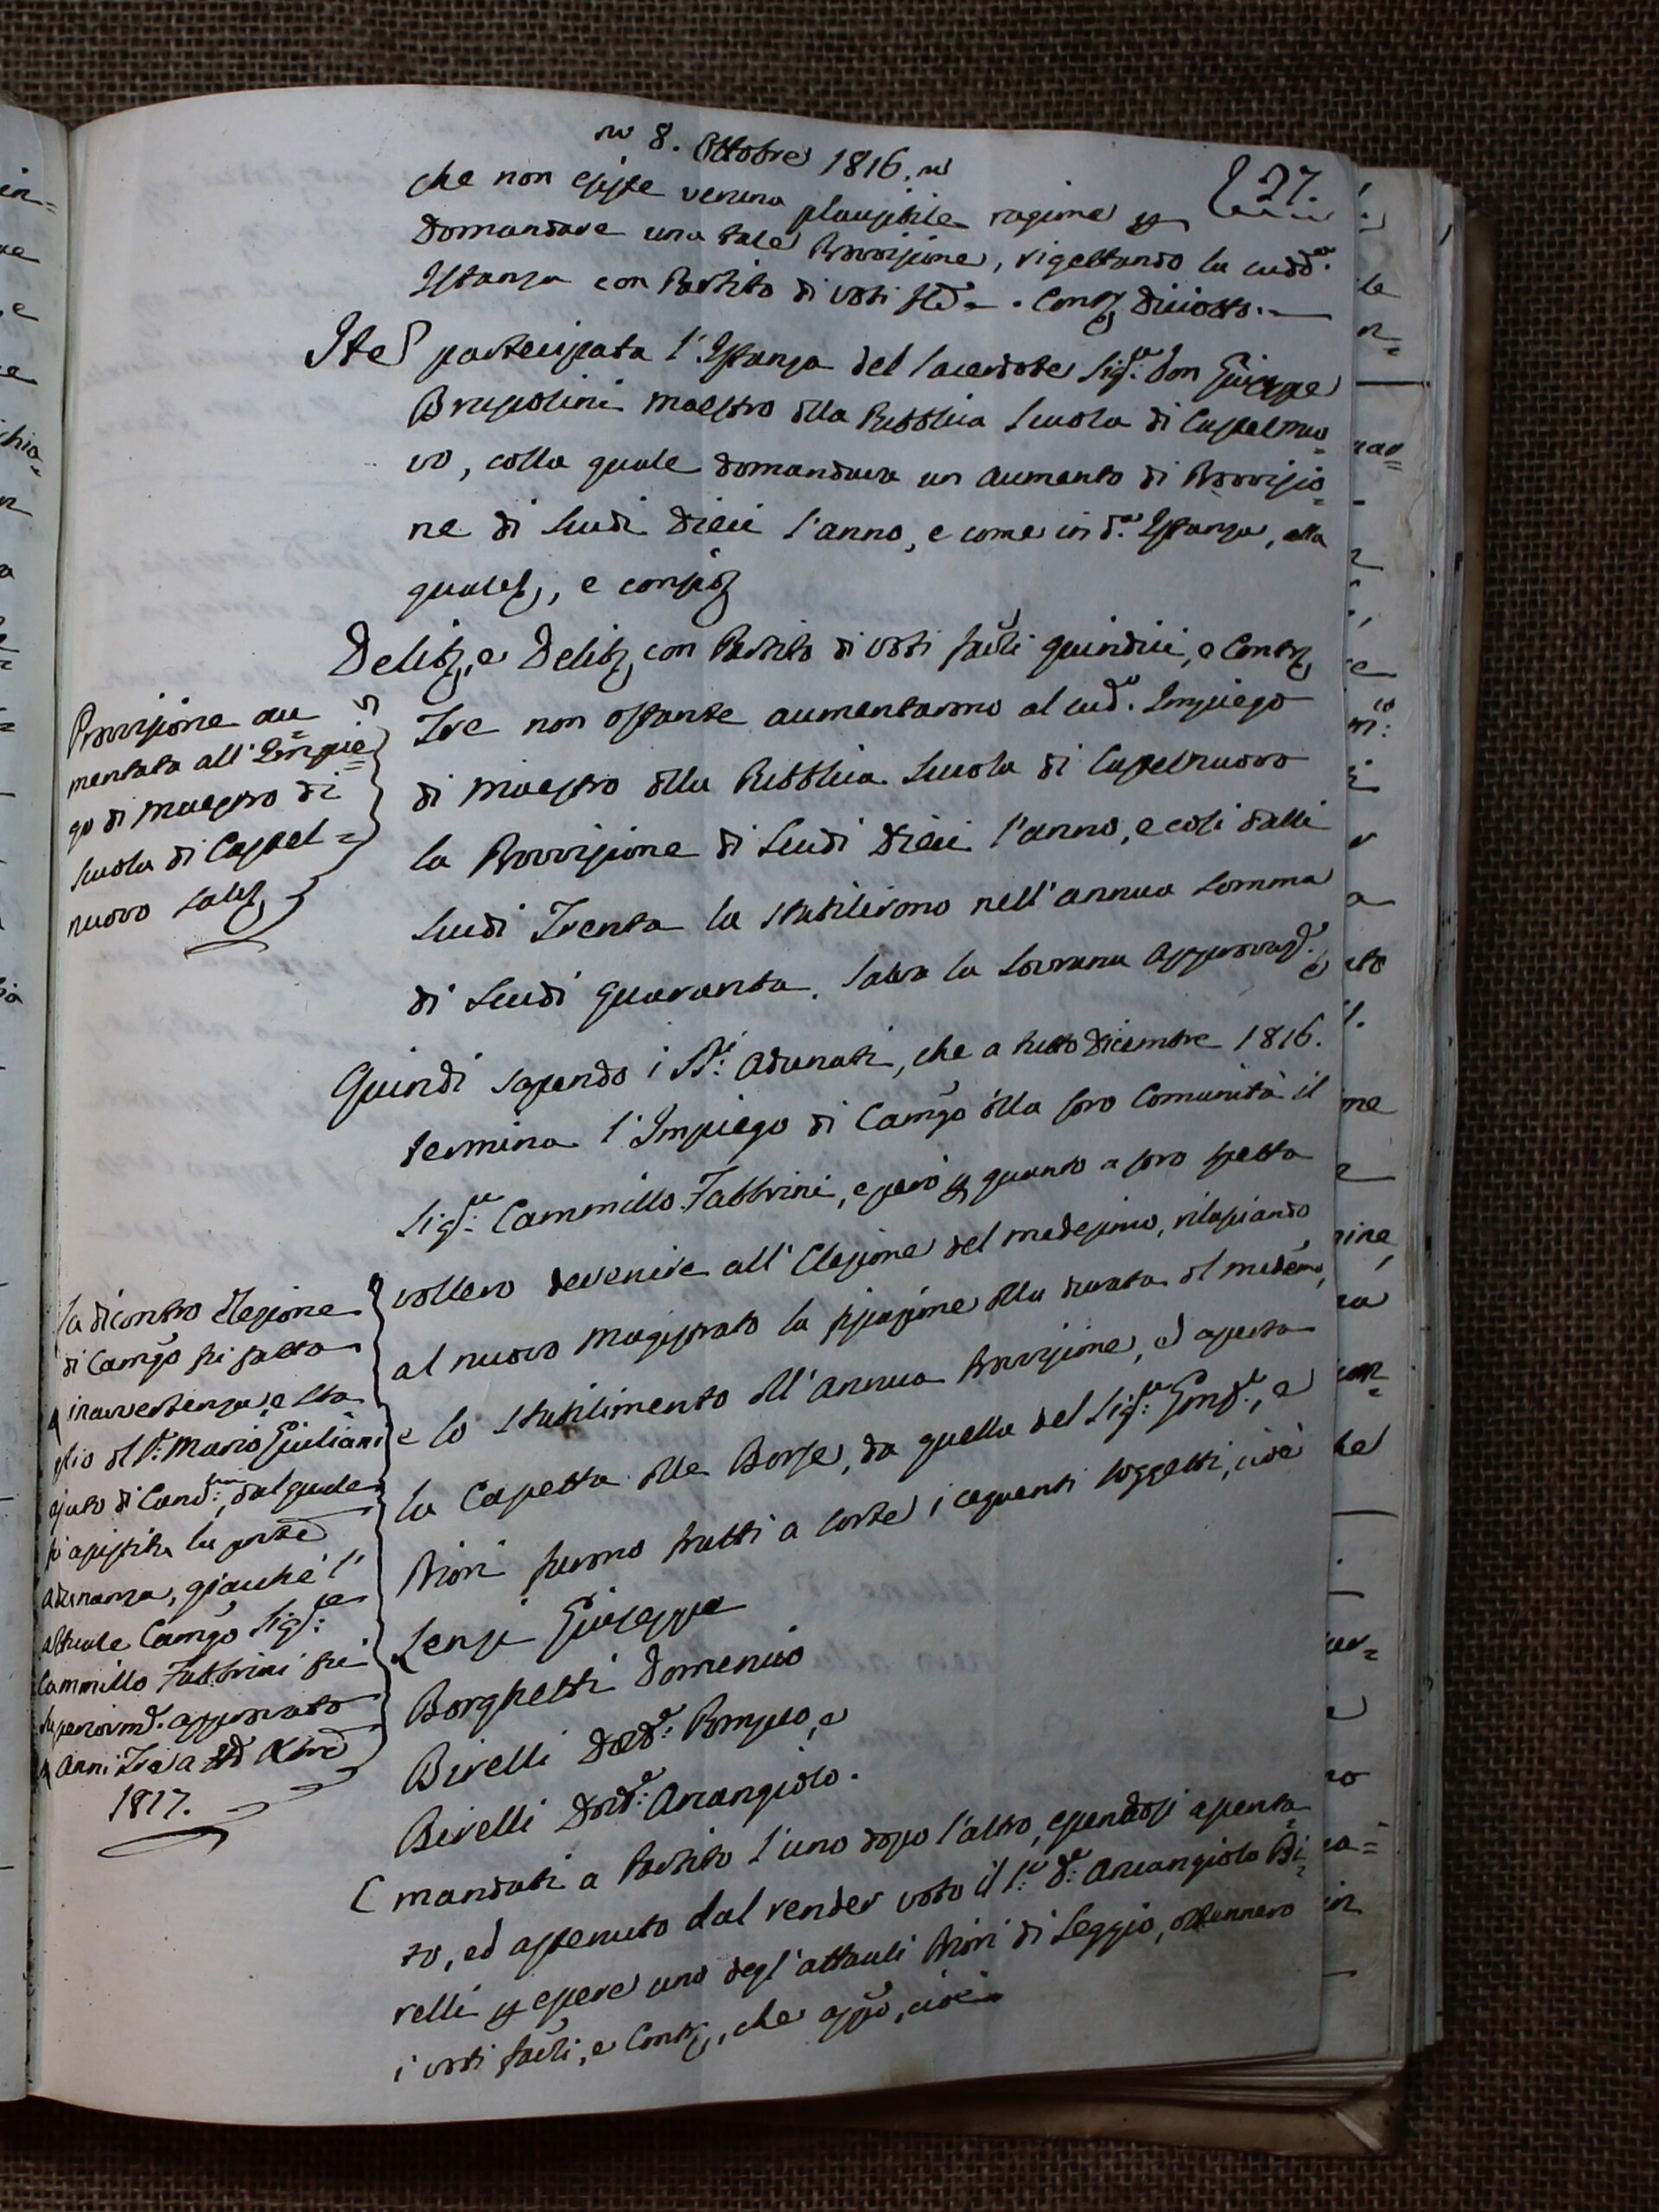 8. Ottobre 1816.
27.
che non esiste veruna plausibile ragione p
domandare una tale Provvisione, rigettando la sudd.a
Istanza con Partito di voti Contr. diciotto.
Ite partecipata l'Istanza del Sacerdote Sig.re Don Giuseppe
Bruscolini Maestro dlla Pubblica Scuola di Castelnuo=
vo, colla quale domandava un aumento di Provvisio=
ne di Scudi dieci l'anno, e come in d.a Istanza, alla
quale, e consid
Delib, e Delib, con Partito di voti favli quindici, e Contr
Tre non ostante aumentarono al sud.o Impiego
di Maestro dlla Pubblica Scuola di Castelnuovo
la Provvisione di Scudi Dieci l'anno, e così dalli
Scudi Trenta la stabilirono nell'annua somma
di Scudi Quaranta, salva la Sovrana Approvaz.e
Quindi sapendo i SS.ri Adunati, che a tutto Dicembre 1816.
termina l'Impiego di Camgo dlla loro Comunità il
Sig.re Cammillo Fabbrini, e però p quanto a loro spetta
vollero devenire all'Elezione del medesimo, rilasciando
al nuovo Magistrato la fissazione dlla durata dl medemo,
e lo stabilimento dll'annua Provvisione, ed aperta
la Cassetta delle Borse, da quella del Sig.re Gonf.re, e
Priori furono tratti a sorte i seguenti soggetti, cioè
Lensi Giuseppe
Borghetti Domenico
Birelli Dott.e Pompeo, e
Birelli Dott.e Arcangiolo.
E mandati a Partito l'uno dopo l'altro, essendosi assenta=
to, ed astenuto dal render voto il S.r D.r Arcangiolo Bi=
relli p essere uno degl'attuali Priori di Seggio, ottennero
i voti favli, e Contr, che app.o, cioè
Provvisione au=
mentata all'Impie=
go di Maestro di
Scuola di Castel=
nuovo salv
La dicontro Elezione
di Camgo fu fatta
p inavvertenza, e sba
glio dl S.r Mario Giuliani
ajuto di Canc.ria, dal quale
fu assistita la pnte
Adunanza, giacchè l'
attuale Camgo Sig.re
Cammillo Fabbrini fu
superiormte. approvato
p Anni Tre a tto Xbre
1817.